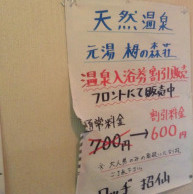 天然温泉
元湯 栂の森荘
温泉入浴券割引販売
フロントにて販売中
通常料金 割引料金
700円→600円
ロッヂ 招仙